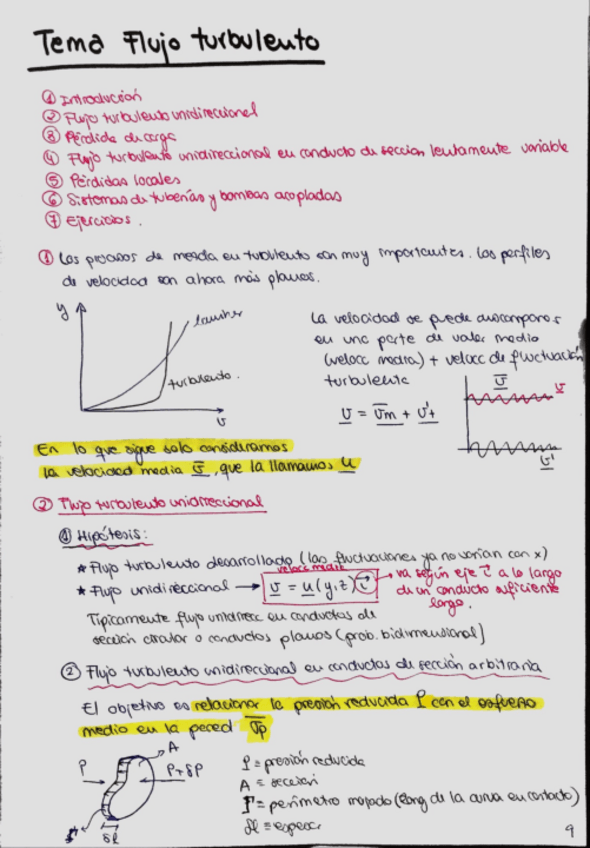 Tema Flujo turbulento
① Introducción
② Flujo turbulento unidireccional
③ Pérdida de carga
④ Flujo turbulento unidireccional en conducto de sección lentamente variable
⑤ Pérdidas locales
⑥ Sistemas de tuberías y bombas acopladas
⑦ Ejercicios.
① Los procesos de mezcla en turbulento son muy importantes. Los perfiles
de velocidad son ahora más planos.
y
laminar
turbulento.
v
La velocidad se puede descomponer
en una parte de valor medio
(veloc media) + veloc de fluctuación
turbulenta
v = v̄m + v't
v̄
v
v'
En lo que sigue solo consideramos
la velocidad media v̄, que la llamamos u
② Flujo turbulento unidireccional
① Hipótesis:
* Flujo turbulento desarrollado (las fluctuaciones ya no varían con x)
veloc media
* Flujo unidireccional → v = u(y,z) i → va según eje i a lo largo
de un conducto suficiente
largo.
Típicamente flujo unidirecc en conductos de
sección circular o conductos planos (prob. bidimensional)
② Flujo turbulento unidireccional en conductos de sección arbitraria
El objetivo es relacionar la presión reducida P con el esfuerzo
medio en la pared
A
P
P+δP
δl
P ≡ presión reducida
A ≡ sección
≡ perímetro mojado (long de la curva en contacto)
δl ≡ espesor
9